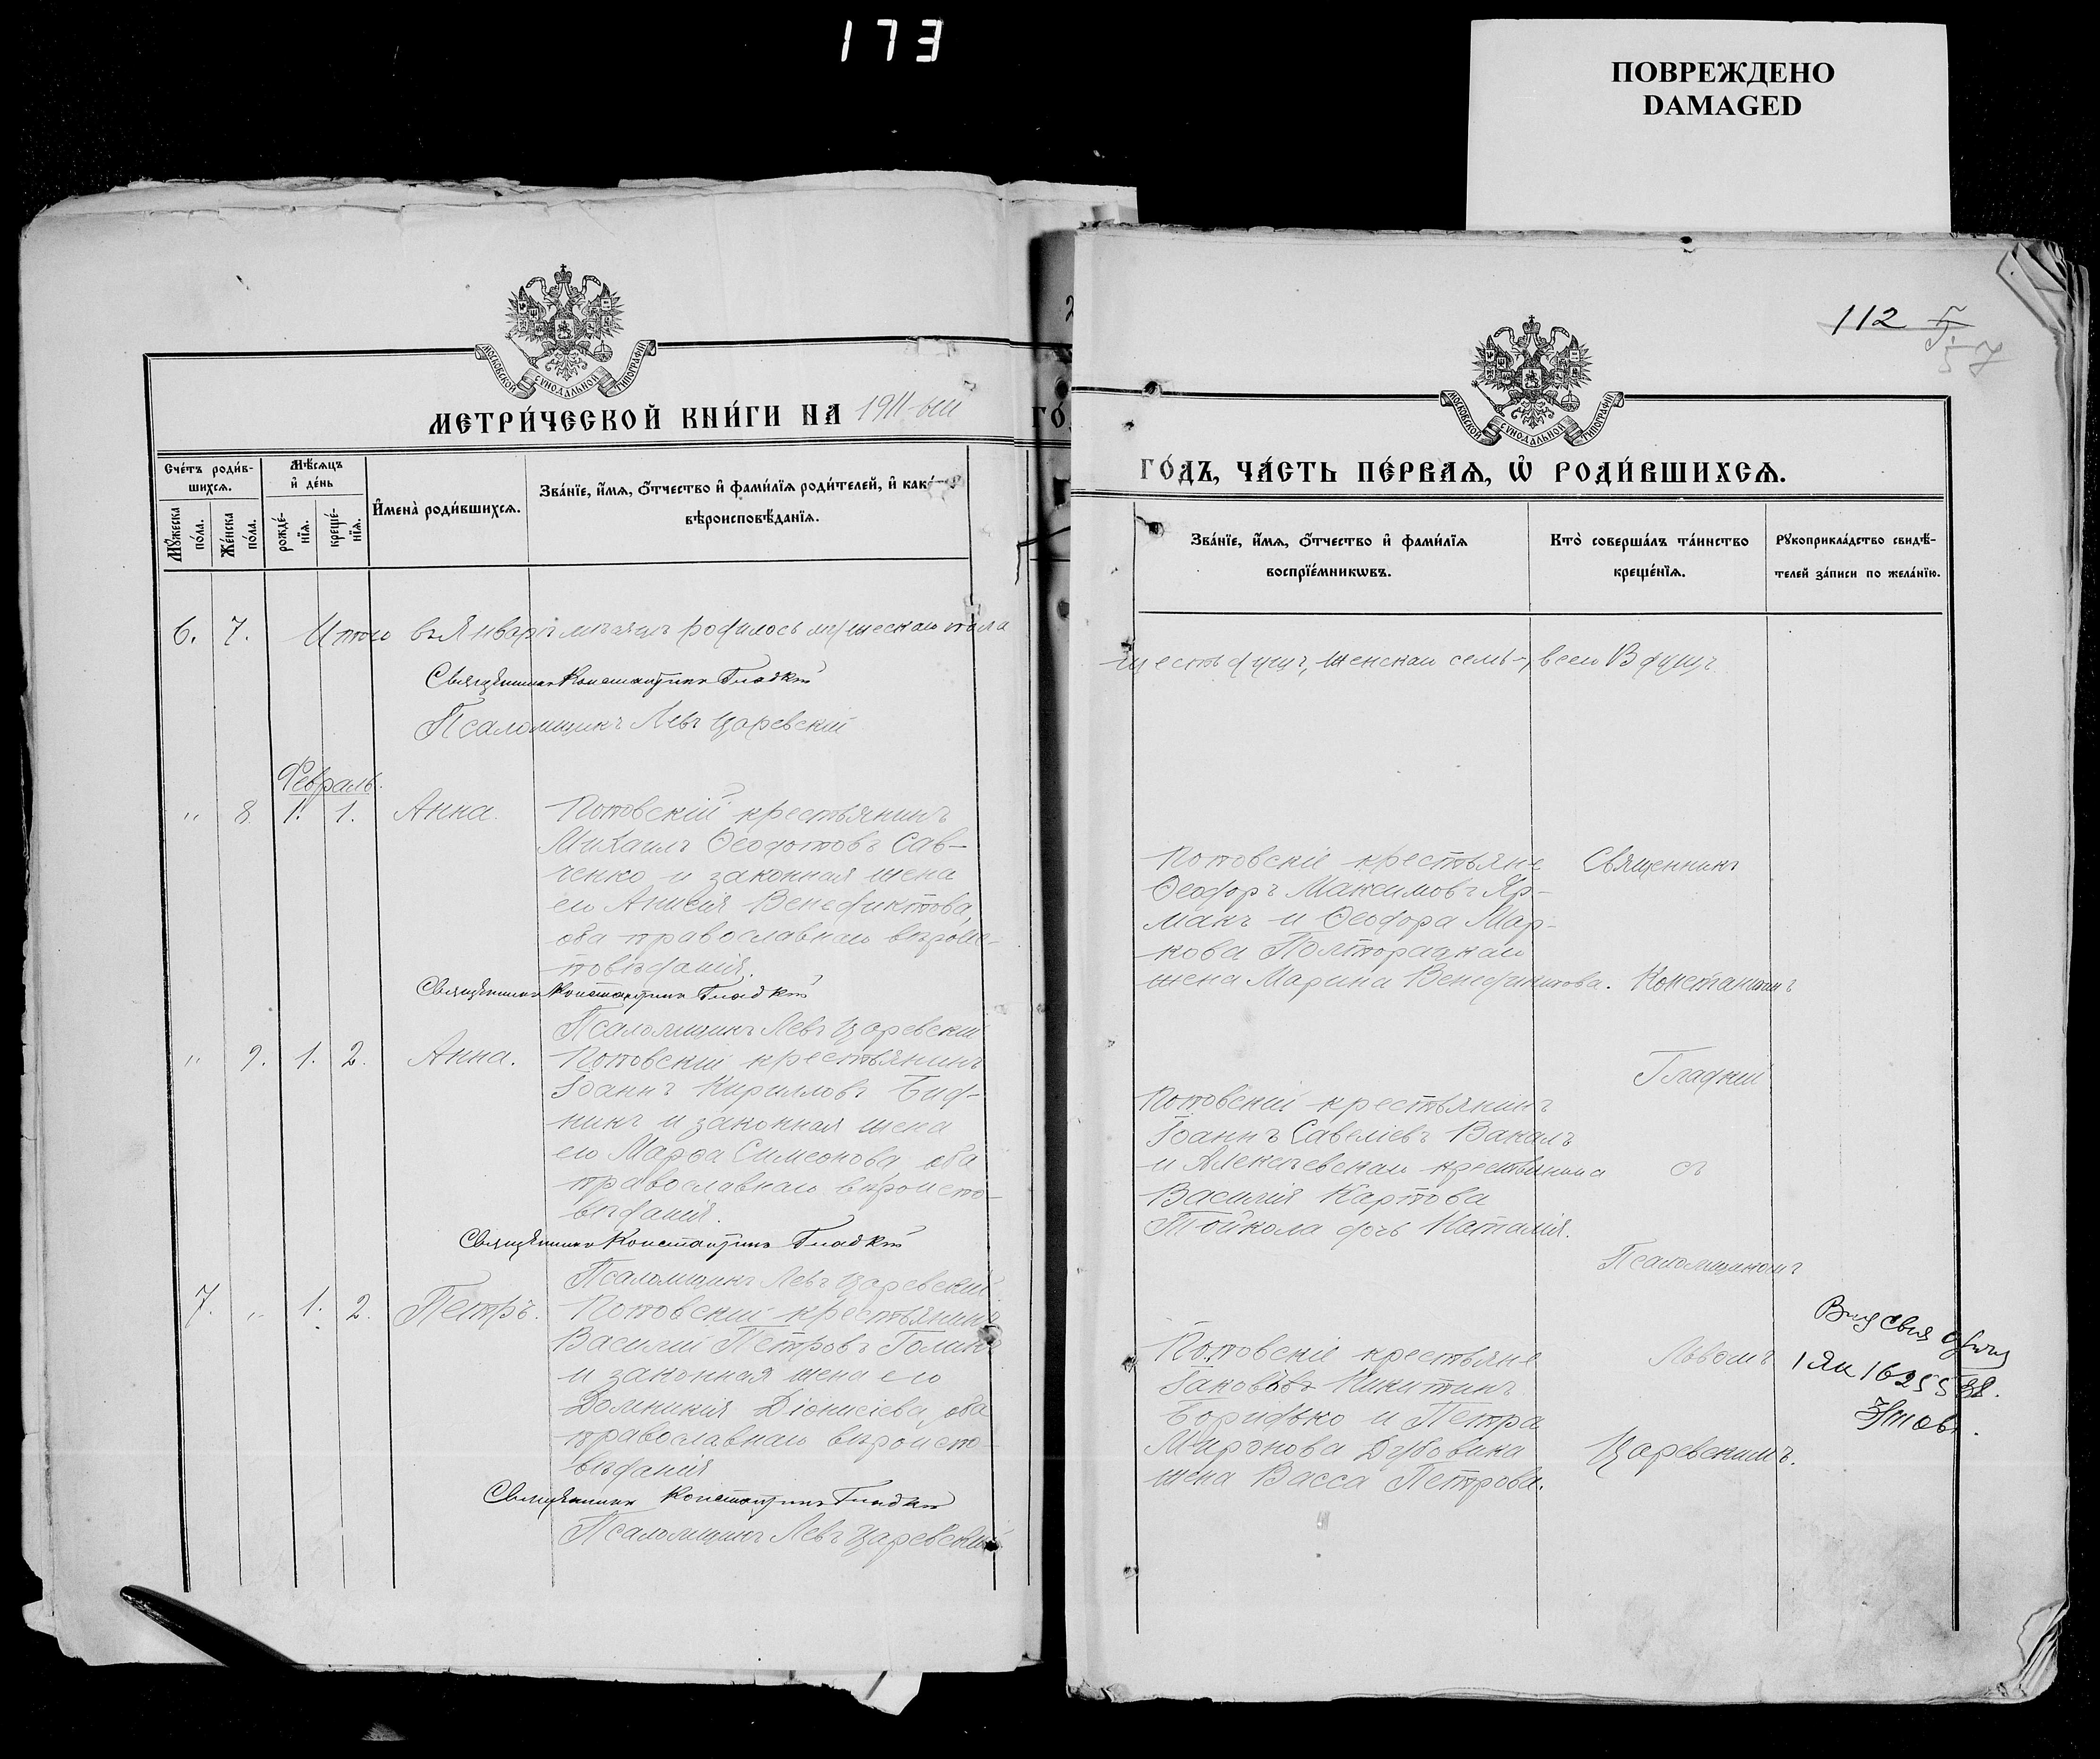 173
ПОВРЕЖДЕНО
DAMAGED
МОСКОВСКОЙ СѴНОДАЛЬНОЙ ТИПОГРАФІИ
МЕТРИ́ЧЕСКОЙ КНИ́ГИ НА 1911-ый
Сче́тъ роди́в-
шихсѧ.
Мѣ́сѧцъ
и҆ де́нь
Мꙋ́жеска
по́ла.
Же́нска
по́ла.
рожде́-
нїѧ.
креще́-
нїѧ.
И҆мена̀ роди́вшихсѧ.
Зва́нїе, и҆́мѧ, ѻ҆́тчество и҆ фами́лїѧ роди́телей, и҆
вѣроисповѣ́данїѧ.
6. 7. Итого въ Январѣ мѣсяцѣ родилось мужескаго пола
Священникъ Константинъ Гладкій
Псаломщикъ Левъ Царевскій
Февраль.
" 8 1. 1. Анна. Поповскій крестьянинъ
Михаилъ Ѳеодотовъ Сав-
ченко и законная жена
его Анисія Венедиктова,
оба православнаго вѣроис-
повѣданія.
Священникъ Константинъ Гладкій
Псаломщикъ Левъ Царевскій
" 9. 1. 2. Анна. Поповскій крестьянинъ
Іоаннъ Кирилловъ Бид-
никъ и законная жена
его Марѳа Симеонова, оба
православнаго вѣроиспо-
вѣданія.
Священникъ Константинъ Гладкій
Псаломщикъ Левъ Царевскій.
7. " 1. 2. Петръ. Поповскій крестьянинъ
Василій Петровъ Голикъ
и законная жена его
Домникія Діонисіева, оба
православнаго вѣроиспо-
вѣданія
Священникъ Константинъ Гладкій
Псаломщикъ Левъ Царевскій
112
57
МОСКОВСКОЙ СѴНОДАЛЬНОЙ ТИПОГРАФІИ
ГО́ДЪ, ЧА́СТЬ ПЕ́РВАѦ, Ѽ РОДИ́ВШИХСѦ.
Зва́нїе, и҆́мѧ, ѻ҆́тчество и҆ фами́лїѧ
воспрїе́мникѡвъ.
Кто̀ соверша́лъ та́инство
креще́нїѧ.
Рꙋкоприкла́дство свидѣ́-
телей за́писи по жела́нїю.
шесть душъ, женскаго семь, всего 13 душъ
Поповскіе крестьяне
Ѳеодоръ Максимовъ Яр-
макъ и Ѳеодора Мар-
кова Полторацкаго
жена Марина Венедиктова.
Священникъ
Константинъ
Гладкій
съ
Псаломщикомъ
Львомъ
Царевскимъ.
Поповскій крестьянинъ
Іоаннъ Савеліевъ Вакалъ
и Алексѣевскаго крестьянина
Василія Карпова
Тойкола дочь Наталія.
Поповскіе крестьяне
Іаковъ Никитинъ
Боридько и Петра
Миронова Дубовика
жена Васса Петрова.
1 ЯИ 16255